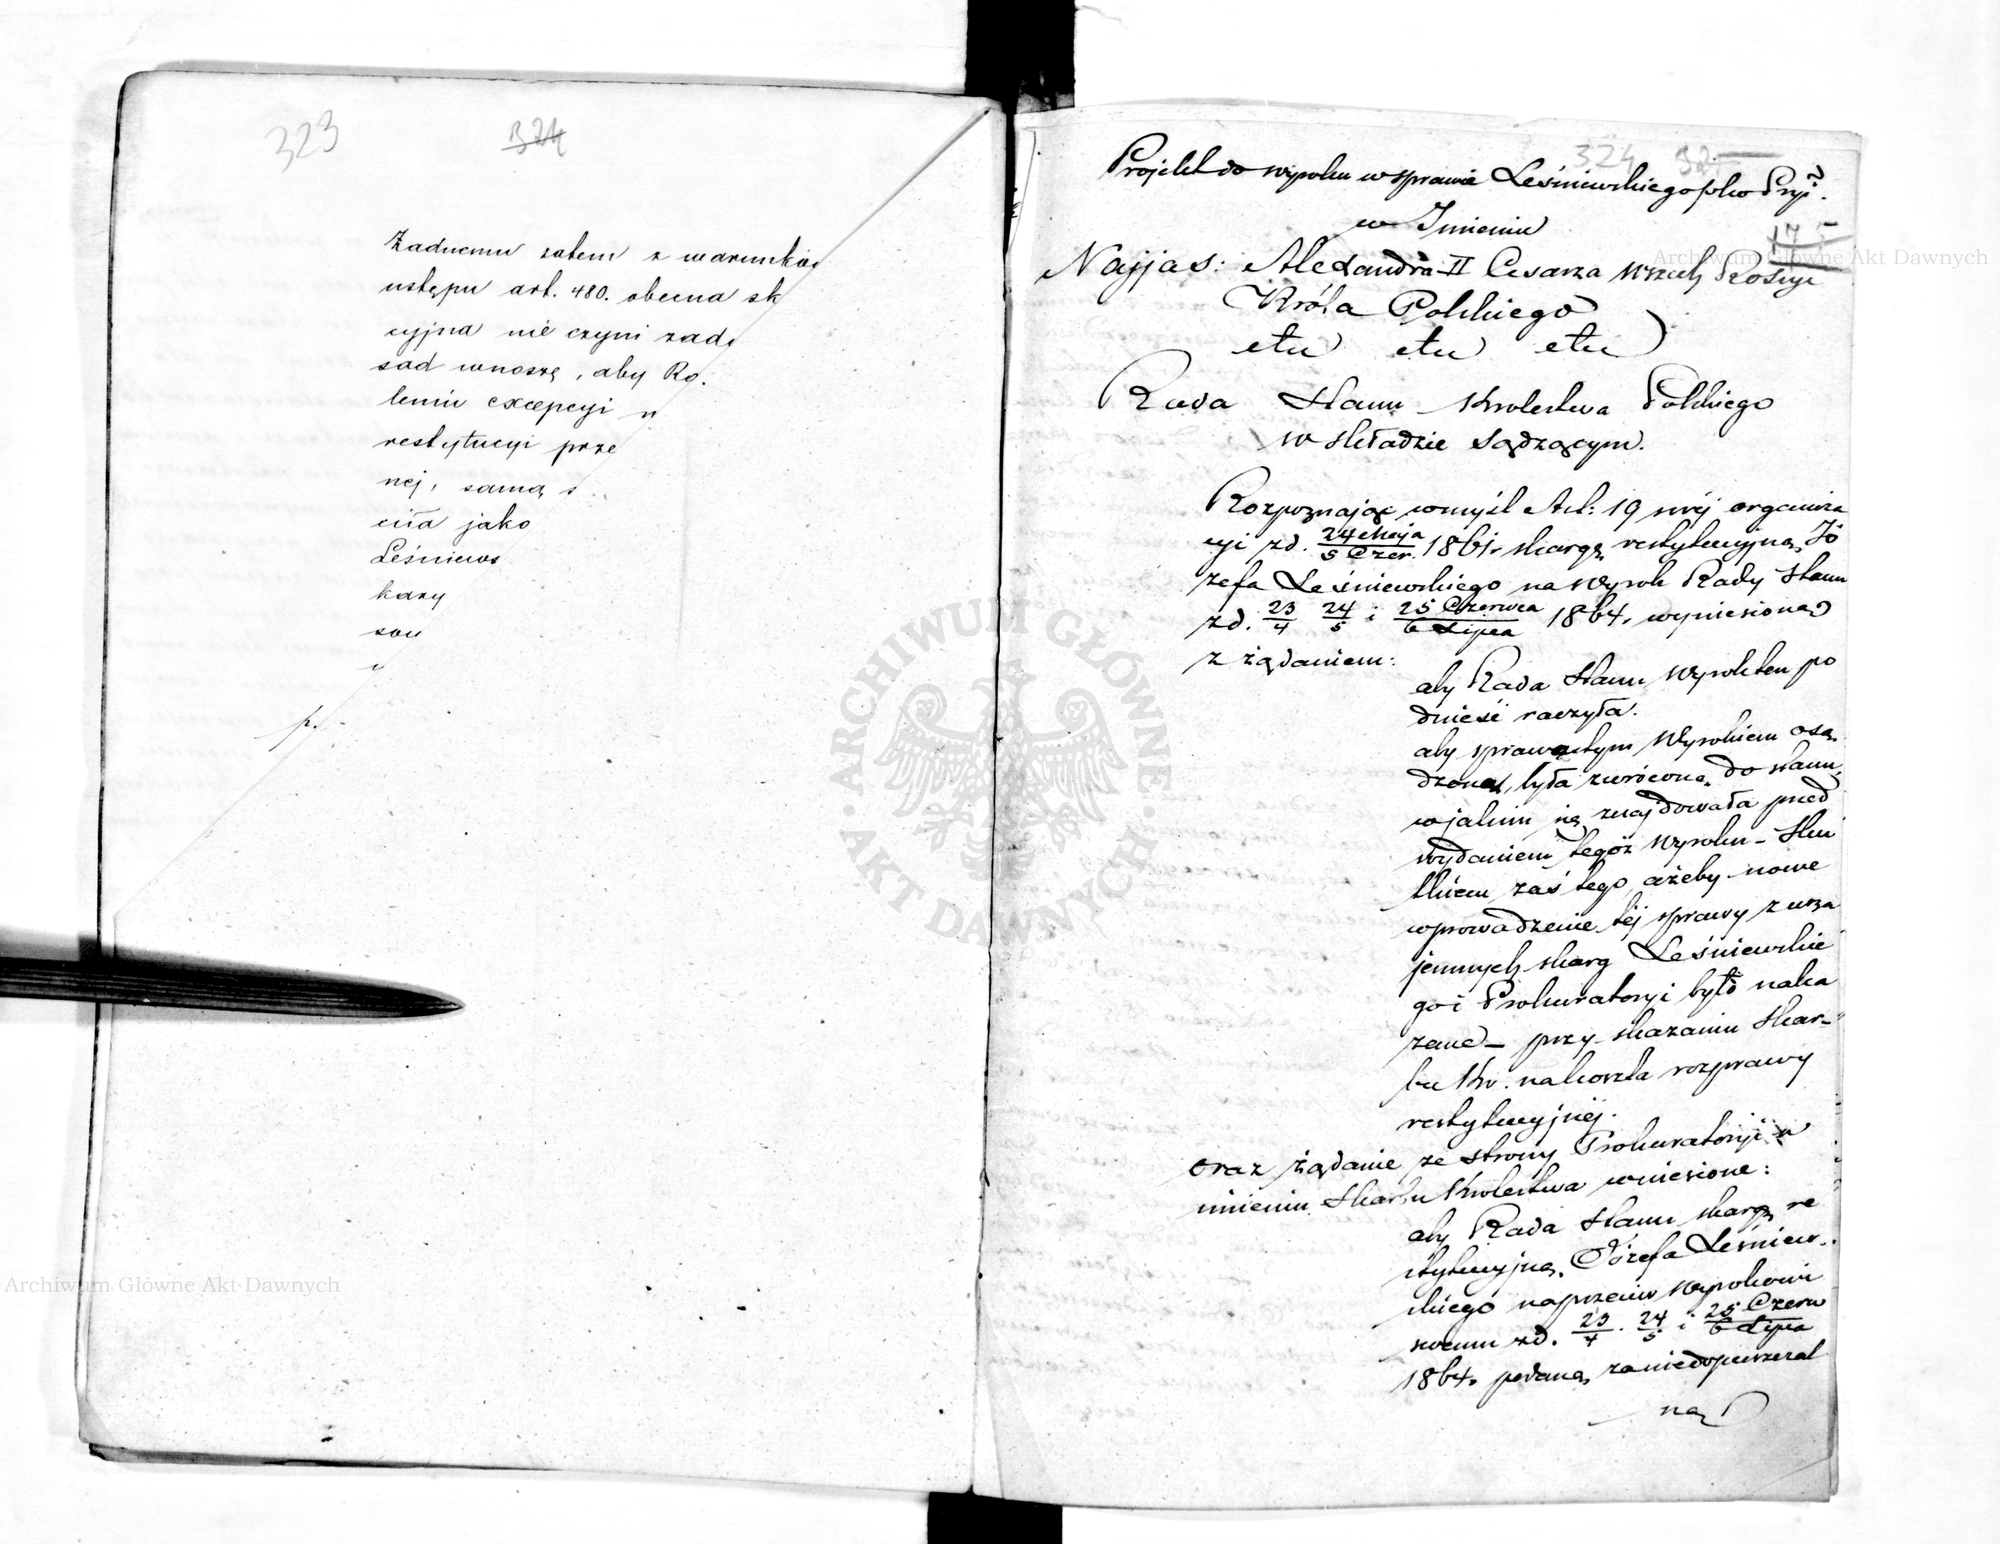 323
324
Żadnemu zatem z warunków
ustępu art. 480. obecna sk
cyjna nie czyni zado
sad wnoszę, aby Ra.
leniu excepcyi n
restytucyi prze
nej, samą s
ciła jako
Leśniews
kary
sąu
324
Projekt do wyroku w sprawie Leśniewskiego
w Imieniu
175
Najjaś: Alexandra II Cesarza Wszech Rossyi
Króla Polskiego
etc etc etc
Rada Stanu Królestwa Polskiego
w składzie Sądzącym.
Rozpoznając w myśl Art: 19 swéj organiza
cyi z d. 24 Maja / 5 Czer. 1861 r. skargę restytucyjną Jó
zefa Leśniewskiego na Wyrok Rady Stanu
z d. 23/4 24/5 i 25 Czerwca / 6 Lipca 1864 r. wyniesioną
z żądaniem:
aby Rada Stanu Wyrok ten po
dnieść raczyła.
aby sprawa tym Wyrokiem osą
dzona, była zwróconą do stanu,
w jakim się znajdowała przed
wydaniem tegoż Wyroku – Sku
tkiem zaś tego, ażeby nowe
wprowadzenie téj sprawy z wza
jemnych skarg Leśniewskie
go i Prokuratoryi było naka
zane – przy skazaniu Skar-
bu Kr. na koszta rozprawy
restytucyjnéj.
oraz żądanie ze strony Prokuratoryi w
imieniu Skarbu Królestwa wniesione:
aby Rada Stanu skargę re
stytucyjną Józefa Leśniew-
skiego naprzeciw Wyrokowi
swemu z d. 23/4. 24/5 i 25 Czerw / 6 Lipca
1864 r. podaną za niedopuszczal
ną
Archiwum Główne Akt Dawnych
ARCHIWUM GŁÓWNE
AKT DAWNYCH
Archiwum Główne Akt Dawnych